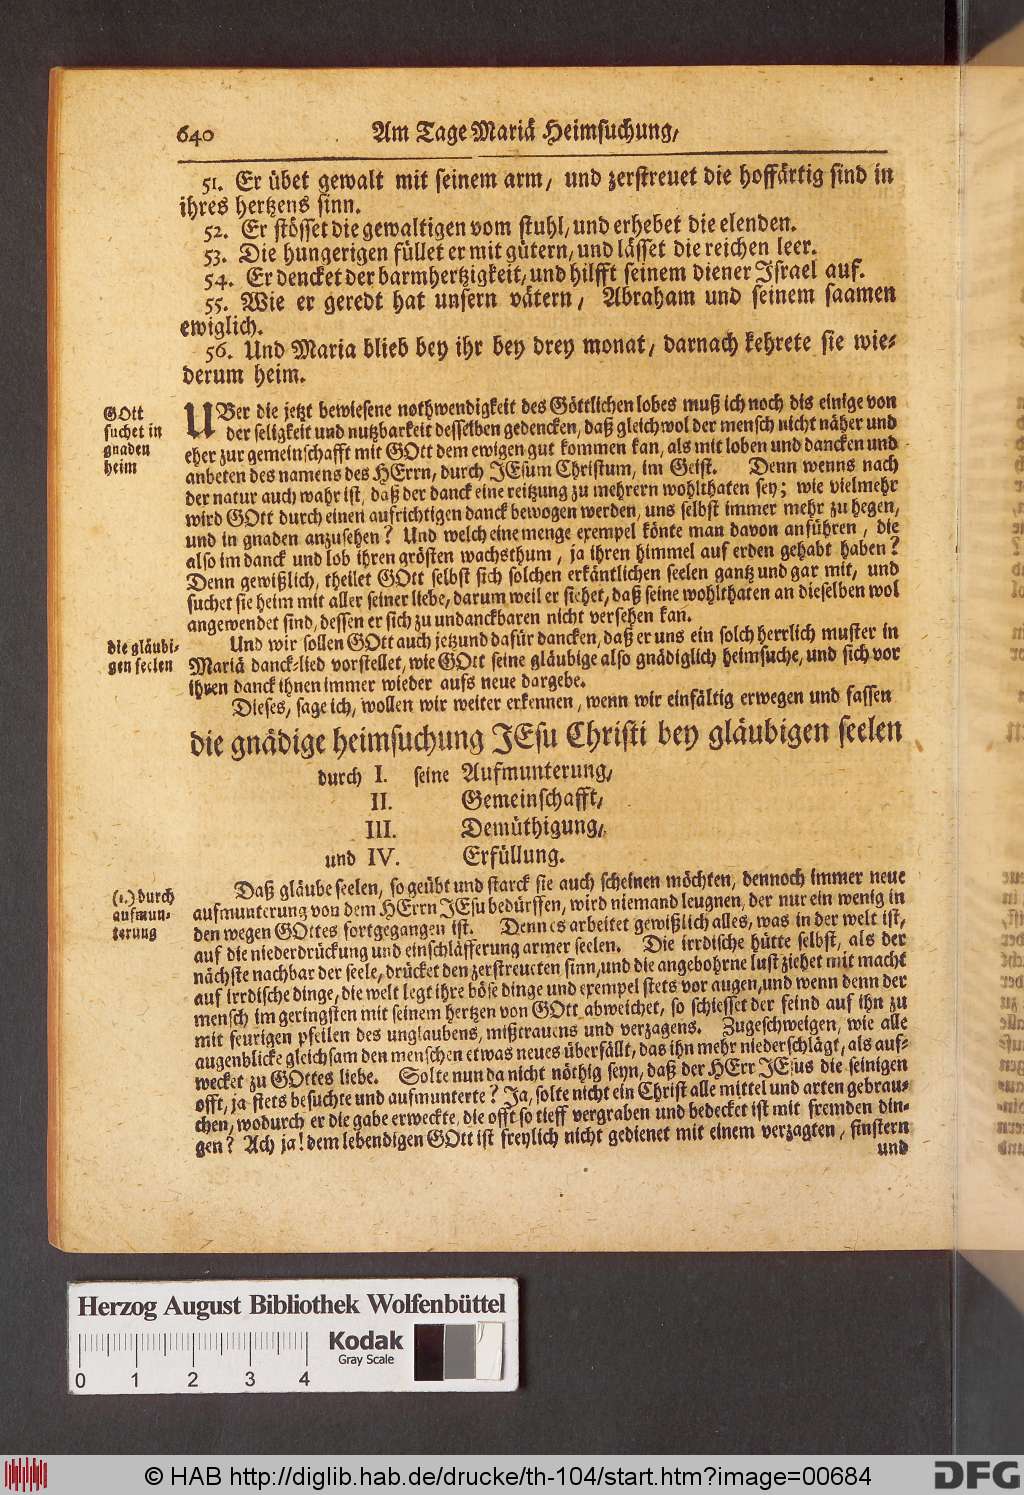 640 Am Tage Mariä Heimsuchung,
51. Er übet gewalt mit seinem arm, und zerstreuet die hoffärtig sind in
ihres hertzens sinn.
52. Er stösset die gewaltigen vom stuhl, und erhebet die elenden.
53. Die hungerigen füllet er mit gütern, und lässet die reichen leer.
54. Er dencket der barmhertzigkeit, und hilfft seinem diener Israel auf.
55. Wie er geredt hat unsern vätern, Abraham und seinem saamen
ewiglich.
56. Und Maria blieb bey ihr bey drey monat, darnach kehrete sie wie-
derum heim.
GOtt
suchet in
gnaden
heim
UBer die jetzt bewiesene nothwendigkeit des Göttlichen lobes muß ich noch dis einige von
der seligkeit und nutzbarkeit desselben gedencken, daß gleichwol der mensch nicht näher und
eher zur gemeinschafft mit GOtt dem ewigen gut kommen kan, als mit loben und dancken und
anbeten des namens des HErrn, durch JEsum Christum, im Geist. Denn wenns nach
der natur auch wahr ist, daß der danck eine reitzung zu mehrern wohlthaten sey; wie vielmehr
wird GOtt durch einen aufrichtigen danck bewogen werden, uns selbst immer mehr zu hegen,
und in gnaden anzusehen? Und welch eine menge exempel könte man davon anführen, die
also im danck und lob ihren grösten wachsthum, ja ihren himmel auf erden gehabt haben?
Denn gewißlich, theilet GOtt selbst sich solchen erkäntlichen seelen gantz und gar mit, und
suchet sie heim mit aller seiner liebe, darum weil er siehet, daß seine wohlthaten an dieselben wol
angewendet sind, dessen er sich zu undanckbaren nicht versehen kan.
die gläubi-
gen seelen
Und wir sollen GOtt auch jetzund dafür dancken, daß er uns ein solch herrlich muster in
Mariä danck-lied vorstellet, wie GOtt seine gläubige also gnädiglich heimsuche, und sich vor
ihren danck ihnen immer wieder aufs neue dargebe.
Dieses, sage ich, wollen wir weiter erkennen, wenn wir einfältig erwegen und fassen
die gnädige heimsuchung JEsu Christi bey gläubigen seelen
durch I. seine Aufmunterung,
II. Gemeinschafft,
III. Demüthigung,
und IV. Erfüllung.
(1.) durch
aufmun-
terung
Daß gläube seelen, so geübt und starck sie auch scheinen möchten, dennoch immer neue
aufmunterung von dem HErrn JEsu bedürffen, wird niemand leugnen, der nur ein wenig in
den wegen GOttes fortgegangen ist. Denn es arbeitet gewißlich alles, was in der welt ist,
auf die niederdrückung und einschläfferung armer seelen. Die irrdische hütte selbst, als der
nächste nachbar der seele, drücket den zerstreueten sinn, und die angebohrne lust ziehet mit macht
auf irrdische dinge, die welt legt ihre böse dinge und exempel stets vor augen, und wenn denn der
mensch im geringsten mit seinem hertzen von GOtt abweichet, so schiesset der feind auf ihn zu
mit feurigen pfeilen des unglaubens, mißtrauens und verzagens. Zugeschweigen, wie alle
augenblicke gleichsam den menschen etwas neues überfällt, das ihn mehr niederschlägt, als auf-
wecket zu GOttes liebe. Solte nun da nicht nöthig seyn, daß der HErr JEsus die seinigen
offt, ja stets besuchte und aufmunterte? Ja, solte nicht ein Christ alle mittel und arten gebrau-
chen, wodurch er die gabe erweckte, die offt so tieff vergraben und bedecket ist mit fremden din-
gen? Ach ja! dem lebendigen GOtt ist freylich nicht gedienet mit einem verzagten, finstern
und
Herzog August Bibliothek Wolfenbüttel
Kodak
Gray Scale
0 1 2 3 4
© HAB http://diglib.hab.de/drucke/th-104/start.htm?image=00684
DFG